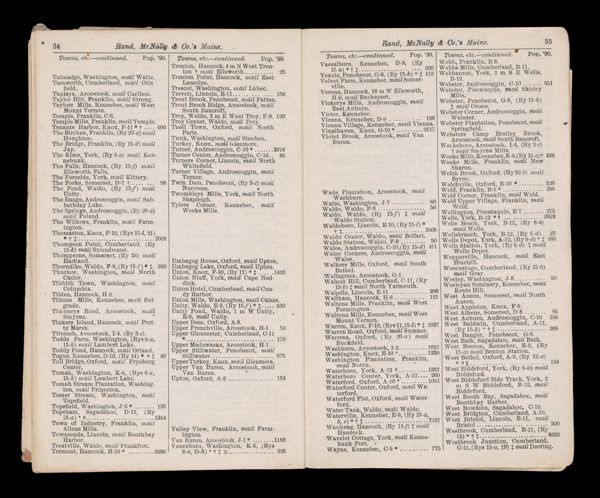 34
Rand, McNally & Co.'s Maine.
Towns, etc.—continued. Pop. '90.
Talmadge, Washington, mail Waite.
Tamworth, Cumberland, mail Otisfield.
Taylor Hill, Franklin, mail Strong.
Taylors Mills, Kennebec, mail West
Mount Vernon.
Temple, Franklin, C-8.
Temple Mills, Franklin, mail Temple.
Tenants Harbor, Knox, F-11 * † . . 600
The Bridge, Franklin, (Ry 15-d) mail
Jay.
The Elms, York, (Ry 6-a) mail Kennebunk.
The Falls, Hancock, (Ry 15-f) mail
Ellsworth Falls.
The Foreside, York, mail Kittery.
The Forks, Somerset, D-7 † . . . 98
The Pond, Waldo, (Ry 15-f) mail
Unity.
The Range, Androscoggin, mail Sabbathday Lake.
The Springs, Androscoggin, (Ry 20-a)
mail Poland.
The Willows, Franklin, mail Farmington.
Thomaston, Knox, F-10, (Rys 15-l, 21)
3009
Thompson Point, Cumberland, (Ry
15-k) mail Stroudwater.
Thompsons, Somerset, (Ry 24) mail
Hartland.
Thorndike, Waldo, F-9, (Ry 15-f) * ‡ 589
Thurlow, Washington, mail North
Cutler.
Tibbitt Town, Washington, mail
Columbia.
Tilden, Hancock, H-8.
Tiltons Mills, Kennebec, mail Belgrade.
Timoneys Road, Aroostook, mail
Smyrna.
Tinkers Island, Hancock, mail Pretty Marsh.
Titcomb, Aroostook, I-4, (Ry 3-c).
Todds Farm, Washington, (Rys 8-a,
15-h) mail Lambert Lake.
Toddy Pond, Hancock, mail Orland.
Togus, Kennebec, D-10, (Ry 14) * † ‡ 48
Toll Bridge, Oxford, mail Fryeburg
Center.
Tomah, Washington, K-6, (Rys 8-a,
15-h) mail Lambert Lake.
Tomah Stream Plantation, Washington, mail Princeton.
Tomar Stream, Washington, mail
Topsfield.
Topsfield, Washington, J-6 * . . . 125
Topsham, Sagadahoc, D-11, (Ry
15-d) * † . . . 1394
Town of Industry, Franklin, mail
Allens Mills.
Townsends, Lincoln, mail Boothbay
Harbor.
Treatville, Waldo, mail Frankfort.
Tremont, Hancock, H-10 * . . . 2036
Towns, etc.—continued. Pop. '90.
Trenton, Hancock, 4 m N West Trenton * mail Ellsworth . . . 25
Trenton Point, Hancock, mail East
Lamoine.
Trescot, Washington, mail Lubec.
Trevett, Lincoln, E-11 . . . 150
Trout Brook, Penobscot, mail Patten.
Trout Brook Ridge, Aroostook, mail
South Bancroft.
Troy, Waldo, 5 m E West Troy, F-9. 100
Troy Center, Waldo, mail Troy.
Tuell Town, Oxford, mail North
Paris.
Tunk, Washington, mail Steuben.
Turkey, Knox, mail Glenmere.
Turner, Androscoggin, C-10 * . . . 2016
Turner Center, Androscoggin, C-10 . . 46
Turners Corner, Lincoln, mail North
Whitefield.
Turner Village, Androscoggin, mail
Turner.
Twin Dam, Penobscot, (Ry 3-c) mail
Norcross.
Twombleys Mills, York, mail North
Shapleigh.
Tylers Corner, Kennebec, mail
Weeks Mills.
Umbagog House, Oxford, mail Upton.
Umbagog Lake, Oxford, mail Upton.
Union, Knox, F-10, (Ry 11) * ‡ . . 1436
Union Bluff, York, mail Cape Neddick.
Union Hotel, Cumberland, mail Cundy Harbor.
Union Mills, Washington, mail Calais.
Unity, Waldo, E-9, (Ry 15-f) * ‡ . . 430
Unity Pond, Waldo, 1 m W Unity,
E-8, mail Unity.
Upper Dam, Oxford, A-8.
Upper Frenchville, Aroostook, H-1 . 50
Upper Gloucester, Cumberland, C-11
* . . . 170
Upper Madawaska, Aroostook, H-1.
Upper Stillwater, Penobscot, mail
Stillwater . . . 675
Upper Turkey, Knox, mail Glenmere.
Upper Van Buren, Aroostook, mail
Van Buren.
Upton, Oxford, A-8 . . . 153
Valley View, Franklin, mail Farmington.
Van Buren, Aroostook, J-1 * . . . 1168
Vanceboro, Washington, K-6, (Rys
8-a, 15-h) * † ‡ . . . 225
Rand, McNally & Co.'s Maine.
35
Towns, etc.—continued. Pop. '90.
Vassalboro, Kennebec, D-9, (Ry
15-a) * † ‡ . . . 200
Veazie, Penobscot, G-8, (Ry 15-h) * ‡ 418
Velvet Farm, Kennebec, mail Somerville.
Verona, Hancock, 18 m W Ellsworth,
H-9, mail Bucksport.
Vickerys Mills, Androscoggin, mail
East Auburn.
Victor, Kennebec.
Vienna, Kennebec, D-9 . . . 198
Vienna Village, Kennebec, mail Vienna.
Vinalhaven, Knox, G-10 * . . . 2617
Violet Brook, Aroostook, mail Van
Buren.
Wade Plantation, Aroostook, mail
Washburn.
Waite, Washington, J-7 . . . 68
Waldo, Waldo, F-9 . . . 50
Waldo, Waldo, (Ry 15-f) ‡ mail
Waldo Station.
Waldoboro, Lincoln, E-10, (Ry 15-l) *
† ‡ . . . 3505
Waldo Center, Waldo, mail Belfast.
Waldo Station, Waldo, F-9 . . . 50
Wales, Androscoggin, C-10, (Ry 15-d) 451
Wales Corners, Androscoggin, mail
Wales.
Walkers Mills, Oxford, mail South
Bethel.
Wallagrass, Aroostook, G-1.
Walnut Hill, Cumberland, C-11, (Ry
15-b) ‡ mail North Yarmouth.
Walpole, Lincoln, E-11 . . . 200
Waltham, Hancock, H-8 . . . 121
Waltons Mills, Franklin, mail West
Farmington.
Waltons Mills, Kennebec, mail West
Mount Vernon.
Warren, Knox, F-10, (Rys 11, 15-l) * ‡ 2037
Warren Road, Oxford, mail Sumner.
Warrens, Oxford, (Ry 20-a) mail
Buckfield.
Washburn, Aroostook, I-3 . . . 1097
Washington, Knox, E-10 * . . . 1230
Washington Plantation, Franklin,
mail North Jay.
Waterboro, York, A-12 * . . . 1357
Waterboro Center, York, A-12 . . . 260
Waterford, Oxford, A-10 * . . . 1001
Waterford Center, Oxford, mail Waterford.
Waterford Flat, Oxford, mail Waterford.
Water Tank, Waldo, mail Waldo.
Waterville, Kennebec, E-9, (Ry 15-a,
b, c) * † ‡ . . . 7107
Waukeag, Hancock, (Ry 15-j) ‡ mail
Hancock.
Wavelet Cottage, York, mail Kennebunk Port.
Wayne, Kennebec, C-9 * . . . 775
Towns, etc.—continued. Pop. '90.
Webb, Franklin, B-8.
Webbs Mills, Cumberland, B-11.
Webhannet, York, 3 m S E Wells,
B-13.
Webster, Androscoggin, C-10 . . . 951
Webster, Piscataquis, mail Shirley
Mills.
Webster, Penobscot, G-8, (Ry 15-h)
‡ mail Orono.
Webster Corner, Androscoggin, mail
Webster.
Webster Plantation, Penobscot, mail
Springfield.
Websters Camp Brailey Brook,
Aroostook, mail South Bancroft.
Weeksboro, Aroostook, I-4, (Ry 3-c)
† mail Smyrna Mills.
Weeks Mills, Kennebec, E-9, (Ry 32-a) * 226
Weeks Mills, Franklin, mail New
Sharon.
Welch Brook, Oxford, (Ry 22-b) mail
Byron.
Welchville, Oxford, B-10 * . . . 320
Weld, Franklin, B-8 * . . . 450
Weld Corner, Franklin, mail Weld.
Weld Upper Village, Franklin, mail
Weld.
Wellington, Piscataquis, E-7 . . . 275
Wells, York, B-13 * † . . . 2029
Wells Beach, York, B-12, (Ry 6-a)
mail Wells.
Wellsbranch, York, B-12, (Ry 6-a) . 23
Wells Depot, York, A-12, (Ry 6-b) * ‡ 180
Wells Station, York, (Ry 6-a) ‡ mail
Wells Depot.
Wepperville, Hancock, mail East
Bluehill.
Wescustogo, Cumberland, (Ry 15-b)
mail Gray.
Wesley, Washington, J-8 . . . 50
Wesleyan Seminary, Kennebec, mail
Kents Hill.
West Anson, Somerset, mail North
Anson.
West Appleton, Knox, F-9.
West Athens, Somerset, D-8 . . . 85
West Auburn, Androscoggin, C-10 . 156
West Baldwin, Cumberland, A-11,
(Ry 15-k) * † ‡ . . . 206
West Bangor, Penobscot, G-8.
West Bath, Sagadahoc, mail Bath.
West Benton, Kennebec, E-9, (Ry
15-a) mail Benton Station.
West Bethel, Oxford, A-9, (Ry 12-a) *
† ‡ . . . 154
West Biddeford, York, (Ry 6-a) mail
Biddeford.
West Biddeford Side Track, York, 2
m S W Biddeford, B-12, mail
Biddeford.
West Booth Bay, Sagadahoc, mail
Boothbay Harbor.
West Bowdoin, Sagadahoc, C-10.
West Bridgton, Cumberland, A-10.
West Bristol, Lincoln, E-11, mail
Bristol . . . 200
Westbrook, Cumberland, B-11, (Ry
19) * † ‡ . . . 6632
Westbrook Junction, Cumberland,
C-11, (Rys 15-a, 19) ‡ mail Deering.